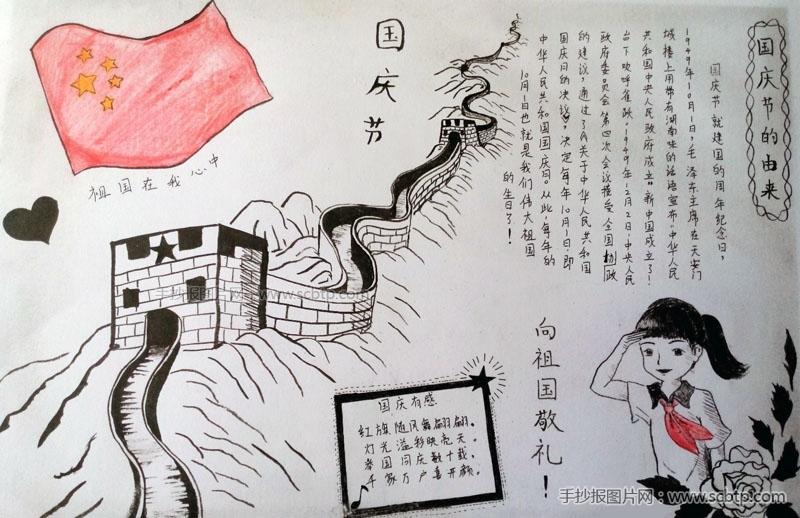 国庆节的由来
国庆节就建国的周年纪念日,
1949年10月1日,毛泽东主席在天安门
城楼上用带有湖南味的话语宣布"中华人民
共和国中央人民政府成立"新中国成立了!
台下欢呼雀跃.1949年12月2日,中央人民
政府委员会第四次会议接受全国政
的建议,通过了《关于中华人民共和国
国庆日的决议》,决定每年10月1日,即
中华人民共和国国庆日。从此,每年的
10月1日也就是我们伟大祖国
的生日了!
国庆节
祖国在我心中
手抄报图片网:www.scbtp.com
向祖国敬礼!
国庆有感
红旗随风舞翩翩。
灯光溢彩映亮天。
举国同庆数十载,
千家万户喜开颜。
手抄报图片网:www.scbtp.com